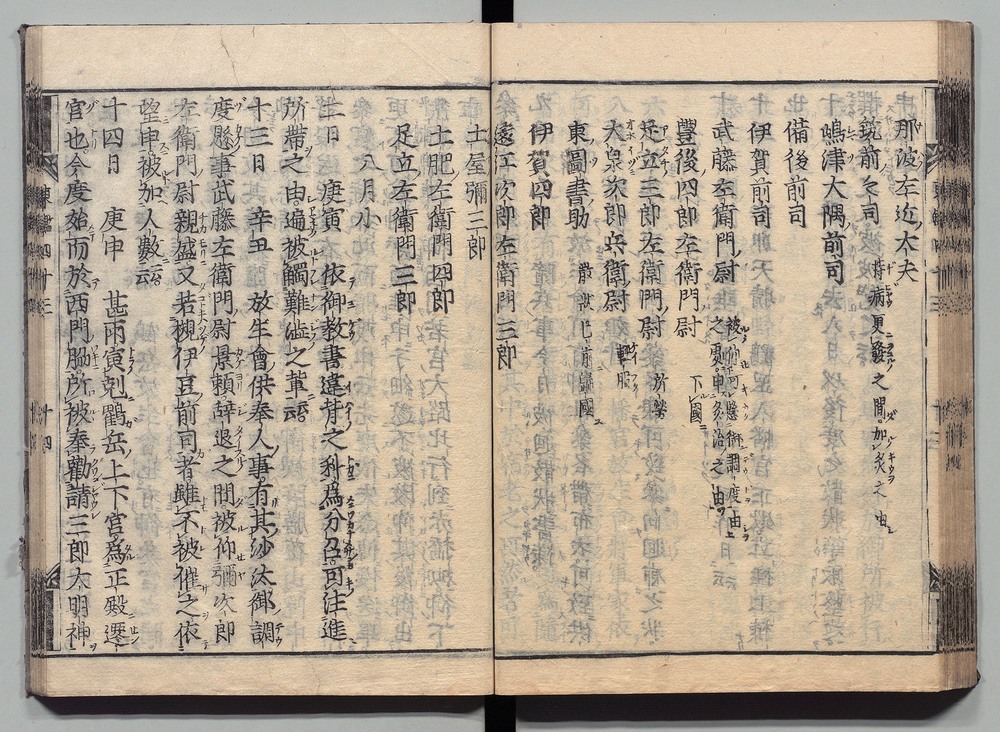 那波左近大夫 持病更發之間加灸之由
筑前々司
嶋津大隅前司
備後前司
伊賀前司
武藤左衛門尉 被仰可懸御調度由之處申
豐後四郎左衛門尉 下國
足立三郎左衛門尉 所勞
大泉次郎兵衛尉 輕服
東圖書助 散状已前歸國
伊賀四郎
遠江次郎左衛門三郎
土屋彌三郎
土肥左衛門四郎
足立左衛門三郎
八月小
庚寅 依御教書違背之科爲分召可注進
所帶之由遍被觸難澁之輩云云
十三日 辛丑 放生會供奉人事有其沙汰御調
度懸事武藤左衛門尉景頼辭退之間被仰彌次郎
左衛門尉親盛又若槻伊豆前司者雖不被催之依
望申被加人數云云
十四日 庚申 甚雨寅剋鸖岳上下宮爲正殿遷
官也今度始而於西門脇所被奉勸請三郎大明神
東鑑四十三 十四